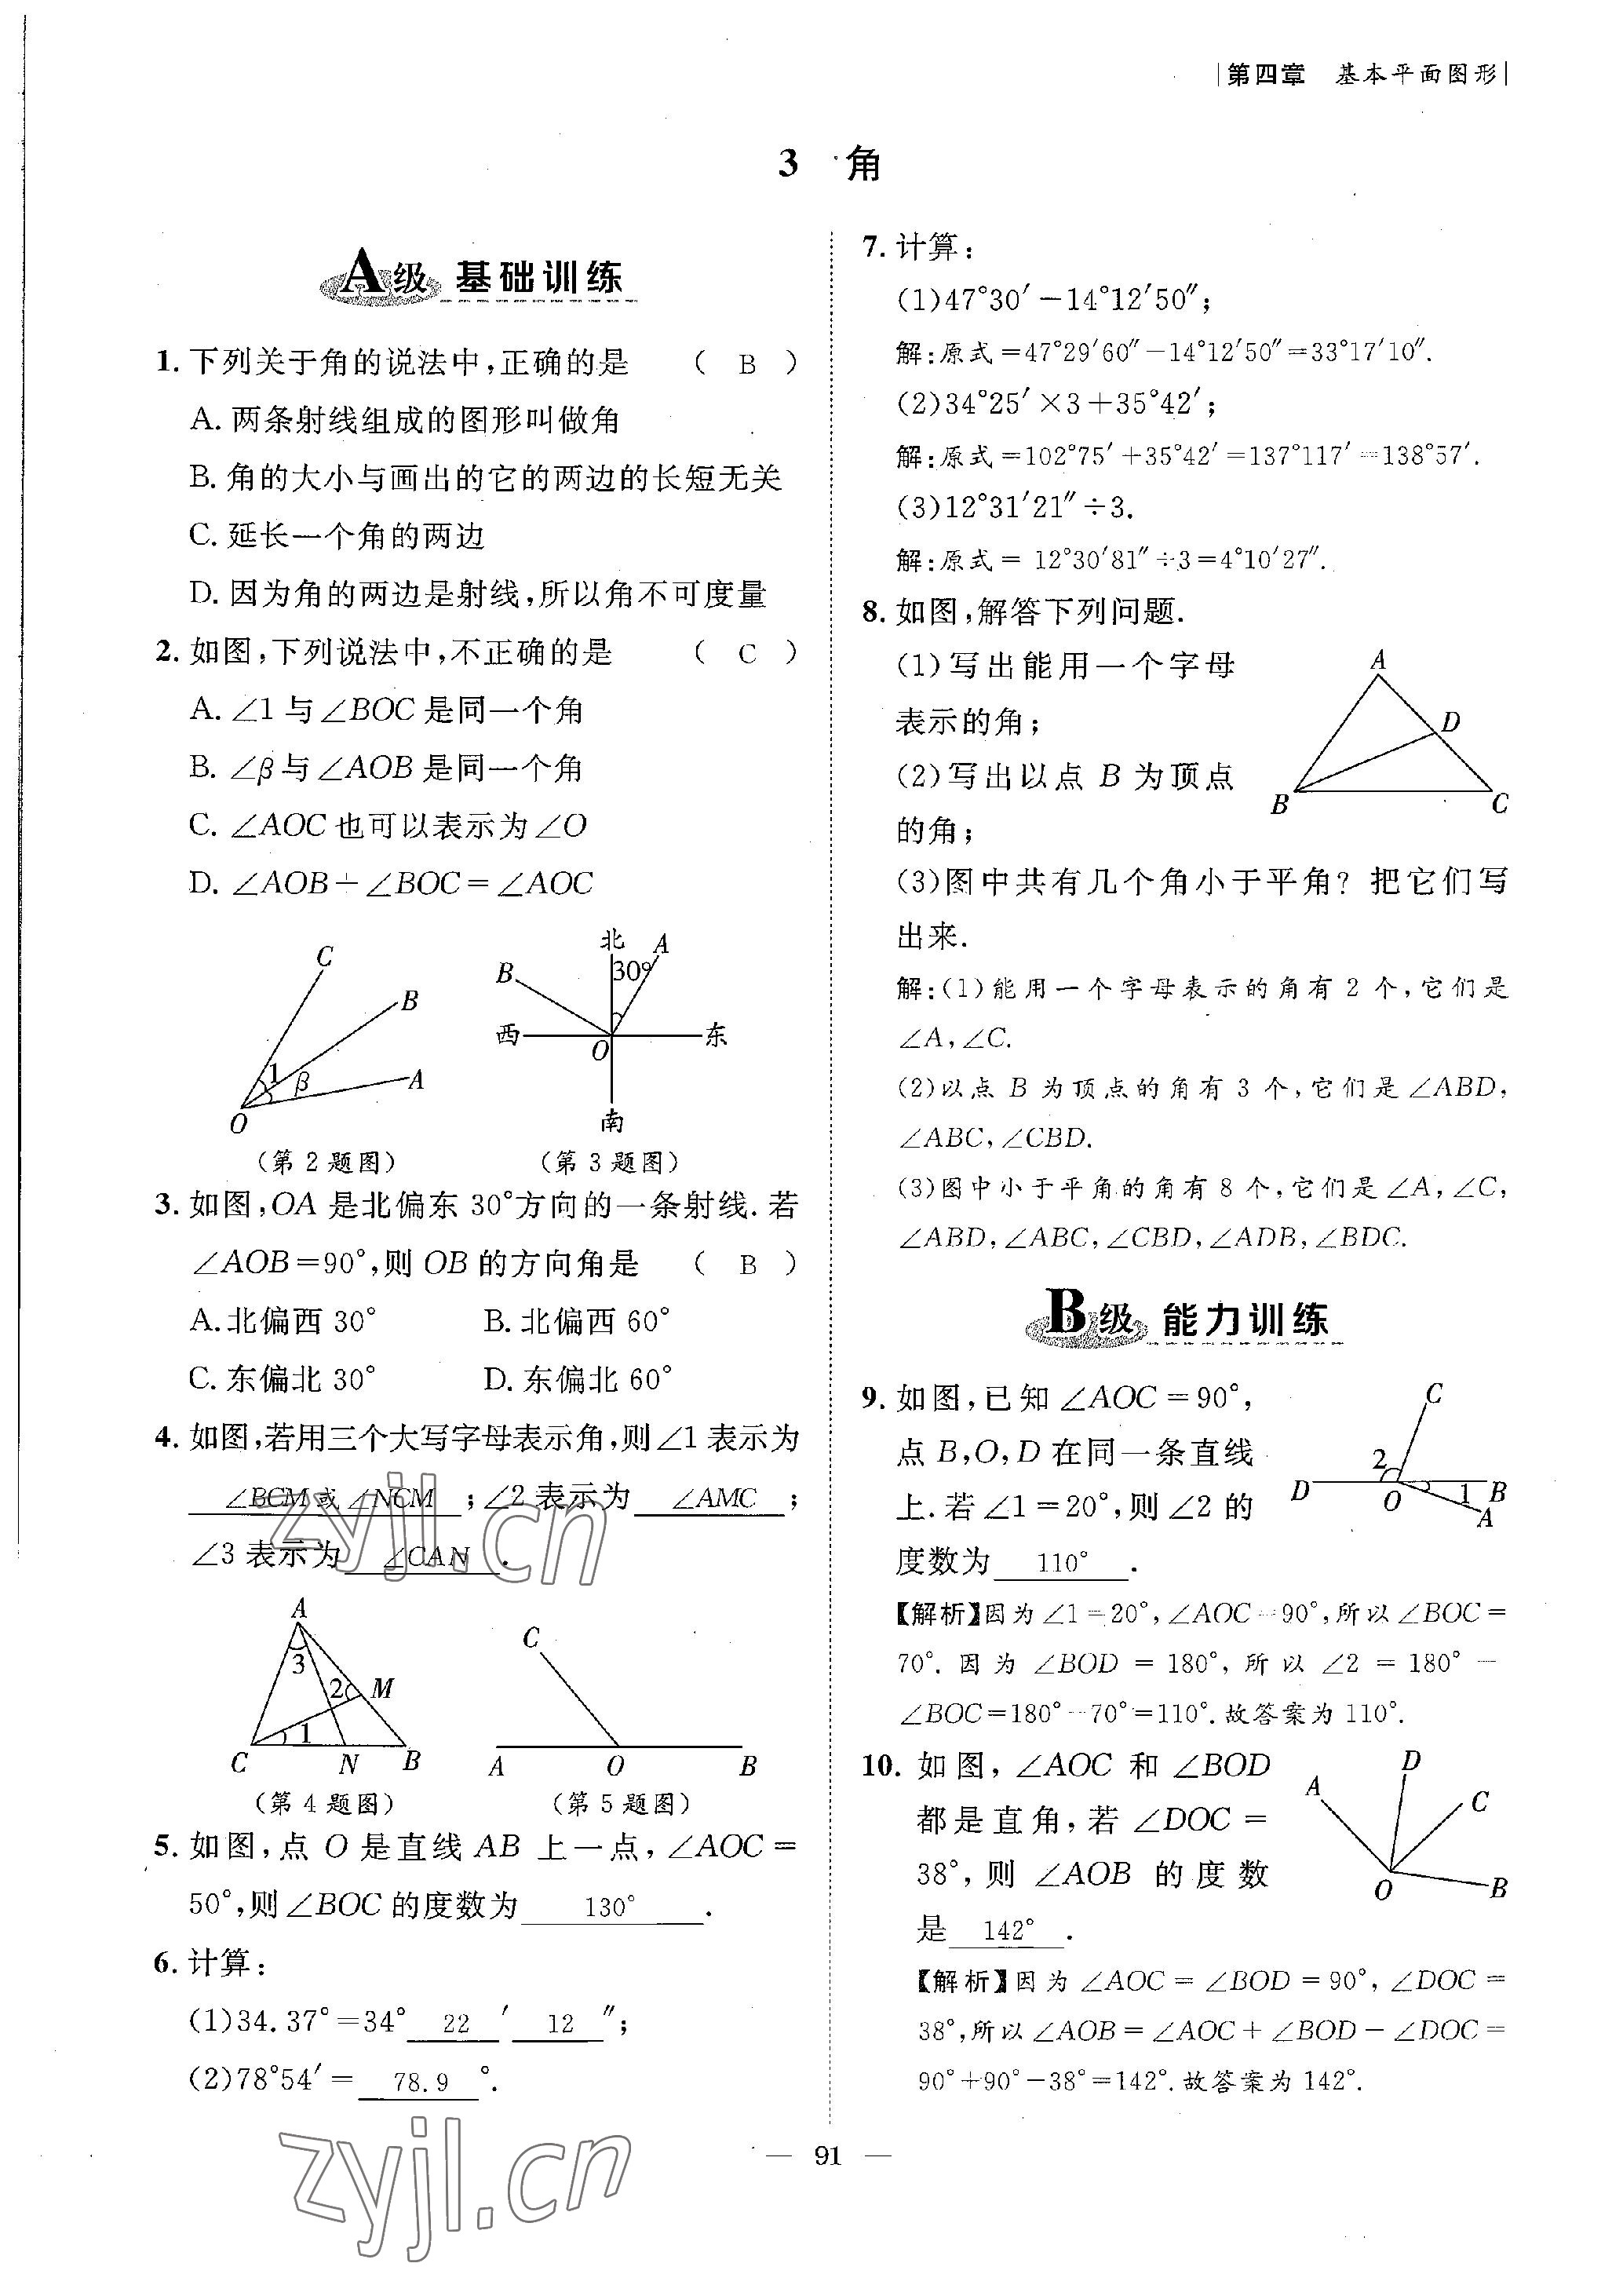 第四章 基本平面图形
3 角
A级 基础训练
1. 下列关于角的说法中,正确的是 ( B )
A. 两条射线组成的图形叫做角
B. 角的大小与画出的它的两边的长短无关
C. 延长一个角的两边
D. 因为角的两边是射线,所以角不可度量
2. 如图,下列说法中,不正确的是 ( C )
A. ∠1与∠BOC是同一个角
B. ∠β与∠AOB是同一个角
C. ∠AOC也可以表示为∠O
D. ∠AOB+∠BOC=∠AOC
C
B
A
1
β
O
(第2题图)
北
A
30°
B
西
东
O
南
(第3题图)
3. 如图,OA是北偏东30°方向的一条射线.若
∠AOB=90°,则OB的方向角是 ( B )
A. 北偏西30° B. 北偏西60°
C. 东偏北30° D. 东偏北60°
4. 如图,若用三个大写字母表示角,则∠1表示为
∠BCM或∠NCM;∠2表示为 ∠AMC;
∠3表示为 ∠CAN.
A
3
2
M
1
C
N
B
(第4题图)
C
A
O
B
(第5题图)
5. 如图,点O是直线AB上一点,∠AOC=
50°,则∠BOC的度数为 130°.
6. 计算:
(1)34.37°=34° 22 ′ 12 ″;
(2)78°54′= 78.9 °.
7. 计算:
(1)47°30′-14°12′50″;
解:原式=47°29′60″-14°12′50″=33°17′10″.
(2)34°25′×3+35°42′;
解:原式=102°75′+35°42′=137°117′=138°57′.
(3)12°31′21″÷3.
解:原式= 12°30′81″÷3=4°10′27″.
8. 如图,解答下列问题.
(1)写出能用一个字母
表示的角;
(2)写出以点B为顶点
的角;
A
D
B
C
(3)图中共有几个角小于平角?把它们写
出来.
解:(1)能用一个字母表示的角有2个,它们是
∠A,∠C.
(2)以点B为顶点的角有3个,它们是∠ABD,
∠ABC,∠CBD.
(3)图中小于平角的角有8个,它们是∠A,∠C,
∠ABD,∠ABC,∠CBD,∠ADB,∠BDC.
B级 能力训练
9. 如图,已知∠AOC=90°,
点B,O,D在同一条直线
上.若∠1=20°,则∠2的
度数为 110°.
C
2
D
O
1
B
A
【解析】因为∠1=20°,∠AOC=90°,所以∠BOC=
70°. 因为∠BOD=180°,所以∠2=180°-
∠BOC=180°-70°=110°.故答案为110°.
10. 如图,∠AOC和∠BOD
都是直角,若∠DOC=
38°,则∠AOB的度数
是 142°.
D
A
C
O
B
【解析】因为∠AOC=∠BOD=90°,∠DOC=
38°,所以∠AOB=∠AOC+∠BOD-∠DOC=
90°+90°-38°=142°.故答案为142°.
zyjl.cn
zyjl.cn
— 91 —